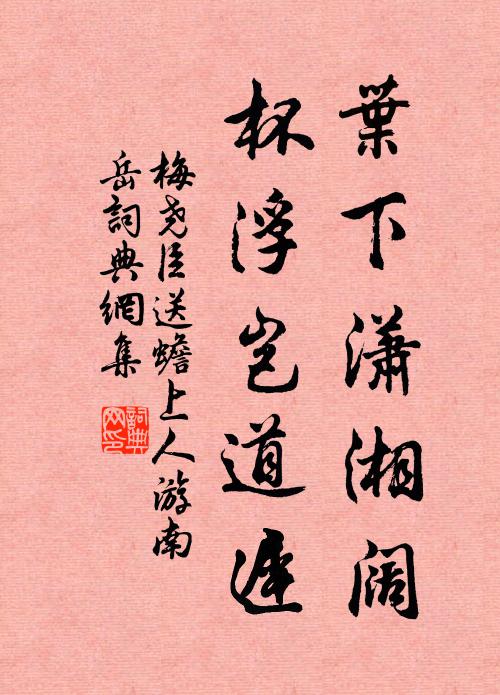 葉下瀟湘闊
杯浮岂道遲
梅尧臣送蟾上人游南
岳詞典網集
詞典
网印